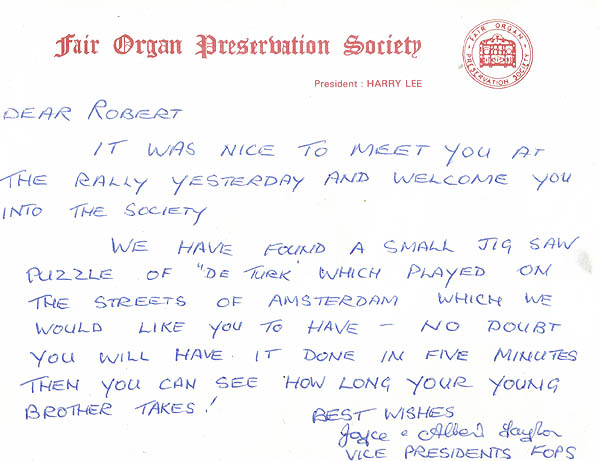 Fair Organ Preservation Society
FAIR ORGAN
PRESERVATION SOCIETY
President : HARRY LEE
DEAR ROBERT
IT WAS NICE TO MEET YOU AT
THE RALLY YESTERDAY AND WELCOME YOU
INTO THE SOCIETY
WE HAVE FOUND A SMALL JIG SAW
PUZZLE OF "DE TURK" WHICH PLAYED ON
THE STREETS OF AMSTERDAM WHICH WE
WOULD LIKE YOU TO HAVE – NO DOUBT
YOU WILL HAVE IT DONE IN FIVE MINUTES
THEN YOU CAN SEE HOW LONG YOUR YOUNG
BROTHER TAKES!
BEST WISHES
Joyce & Albert Taylor
VICE PRESIDENTS FOPS